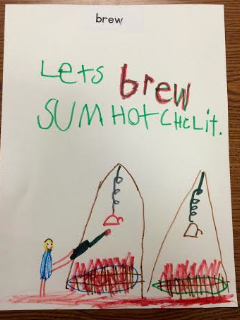 brew
Lets brew
SUM HOt CHCLit.